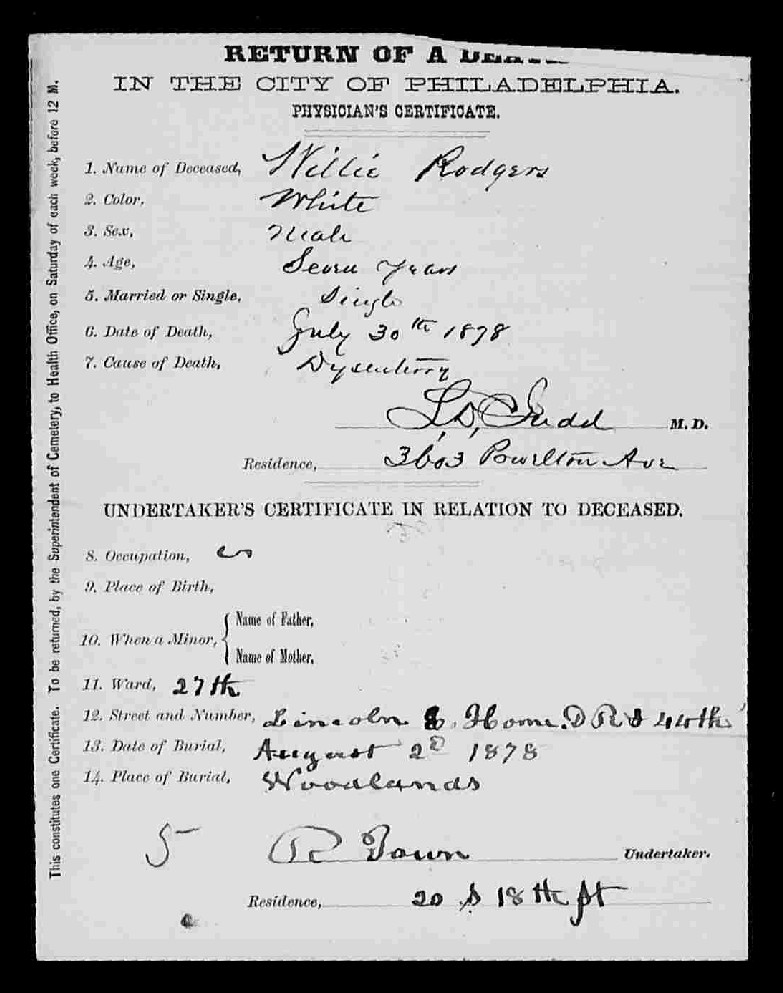 RETURN OF A DEATH
IN THE CITY OF PHILADELPHIA.
PHYSICIAN'S CERTIFICATE.
1. Name of Deceased, Willie Rodgers
2. Color, White
3. Sex, Male
4. Age, Seven Years
5. Married or Single, Single
6. Date of Death, July 30th 1878
7. Cause of Death, Dysentery
M. D.
Residence, 3603 Powelton Ave
UNDERTAKER'S CERTIFICATE IN RELATION TO DECEASED.
8. Occupation,
9. Place of Birth,
10. When a Minor, { Name of Father,
Name of Mother,
11. Ward, 27th
12. Street and Number, Lincoln Home. D R & 44th
13. Date of Burial, August 2d 1878
14. Place of Burial, Woodlands
5 R Town Undertaker.
Residence, 20 S 18th St
This constitutes one Certificate. To be returned, by the Superintendent of Cemetery, to Health Office, on Saturday of each week, before 12 M.